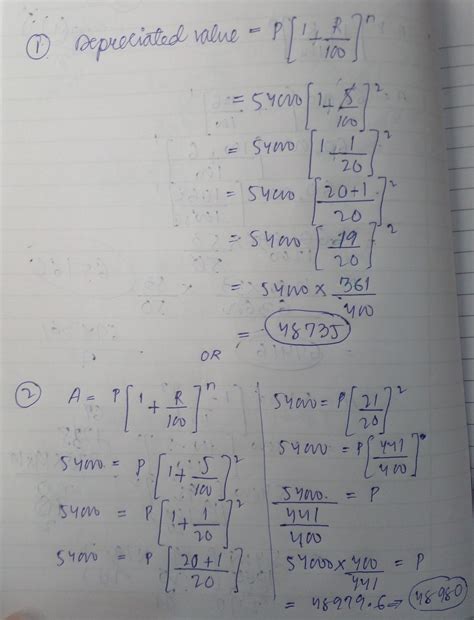 ① Depreciated value = P[1+R/100]^n
= 54000[1+5/100]^2
= 54000[1-1/20]^2
= 54000[20+1/20]^2
= 54000[19/20]^2
= 5400 × 361/400
= 48735
OR
② A = P[1+R/100]^n
54000 = P[1+5/100]^2
54000 = P[1+1/20]^2
54000 = P[20+1/20]
54000 = P[21/20]^2
54000 = P[441/400]
54000/441/400 = P
54000×400/441 = P
= 48979.6 → 48980